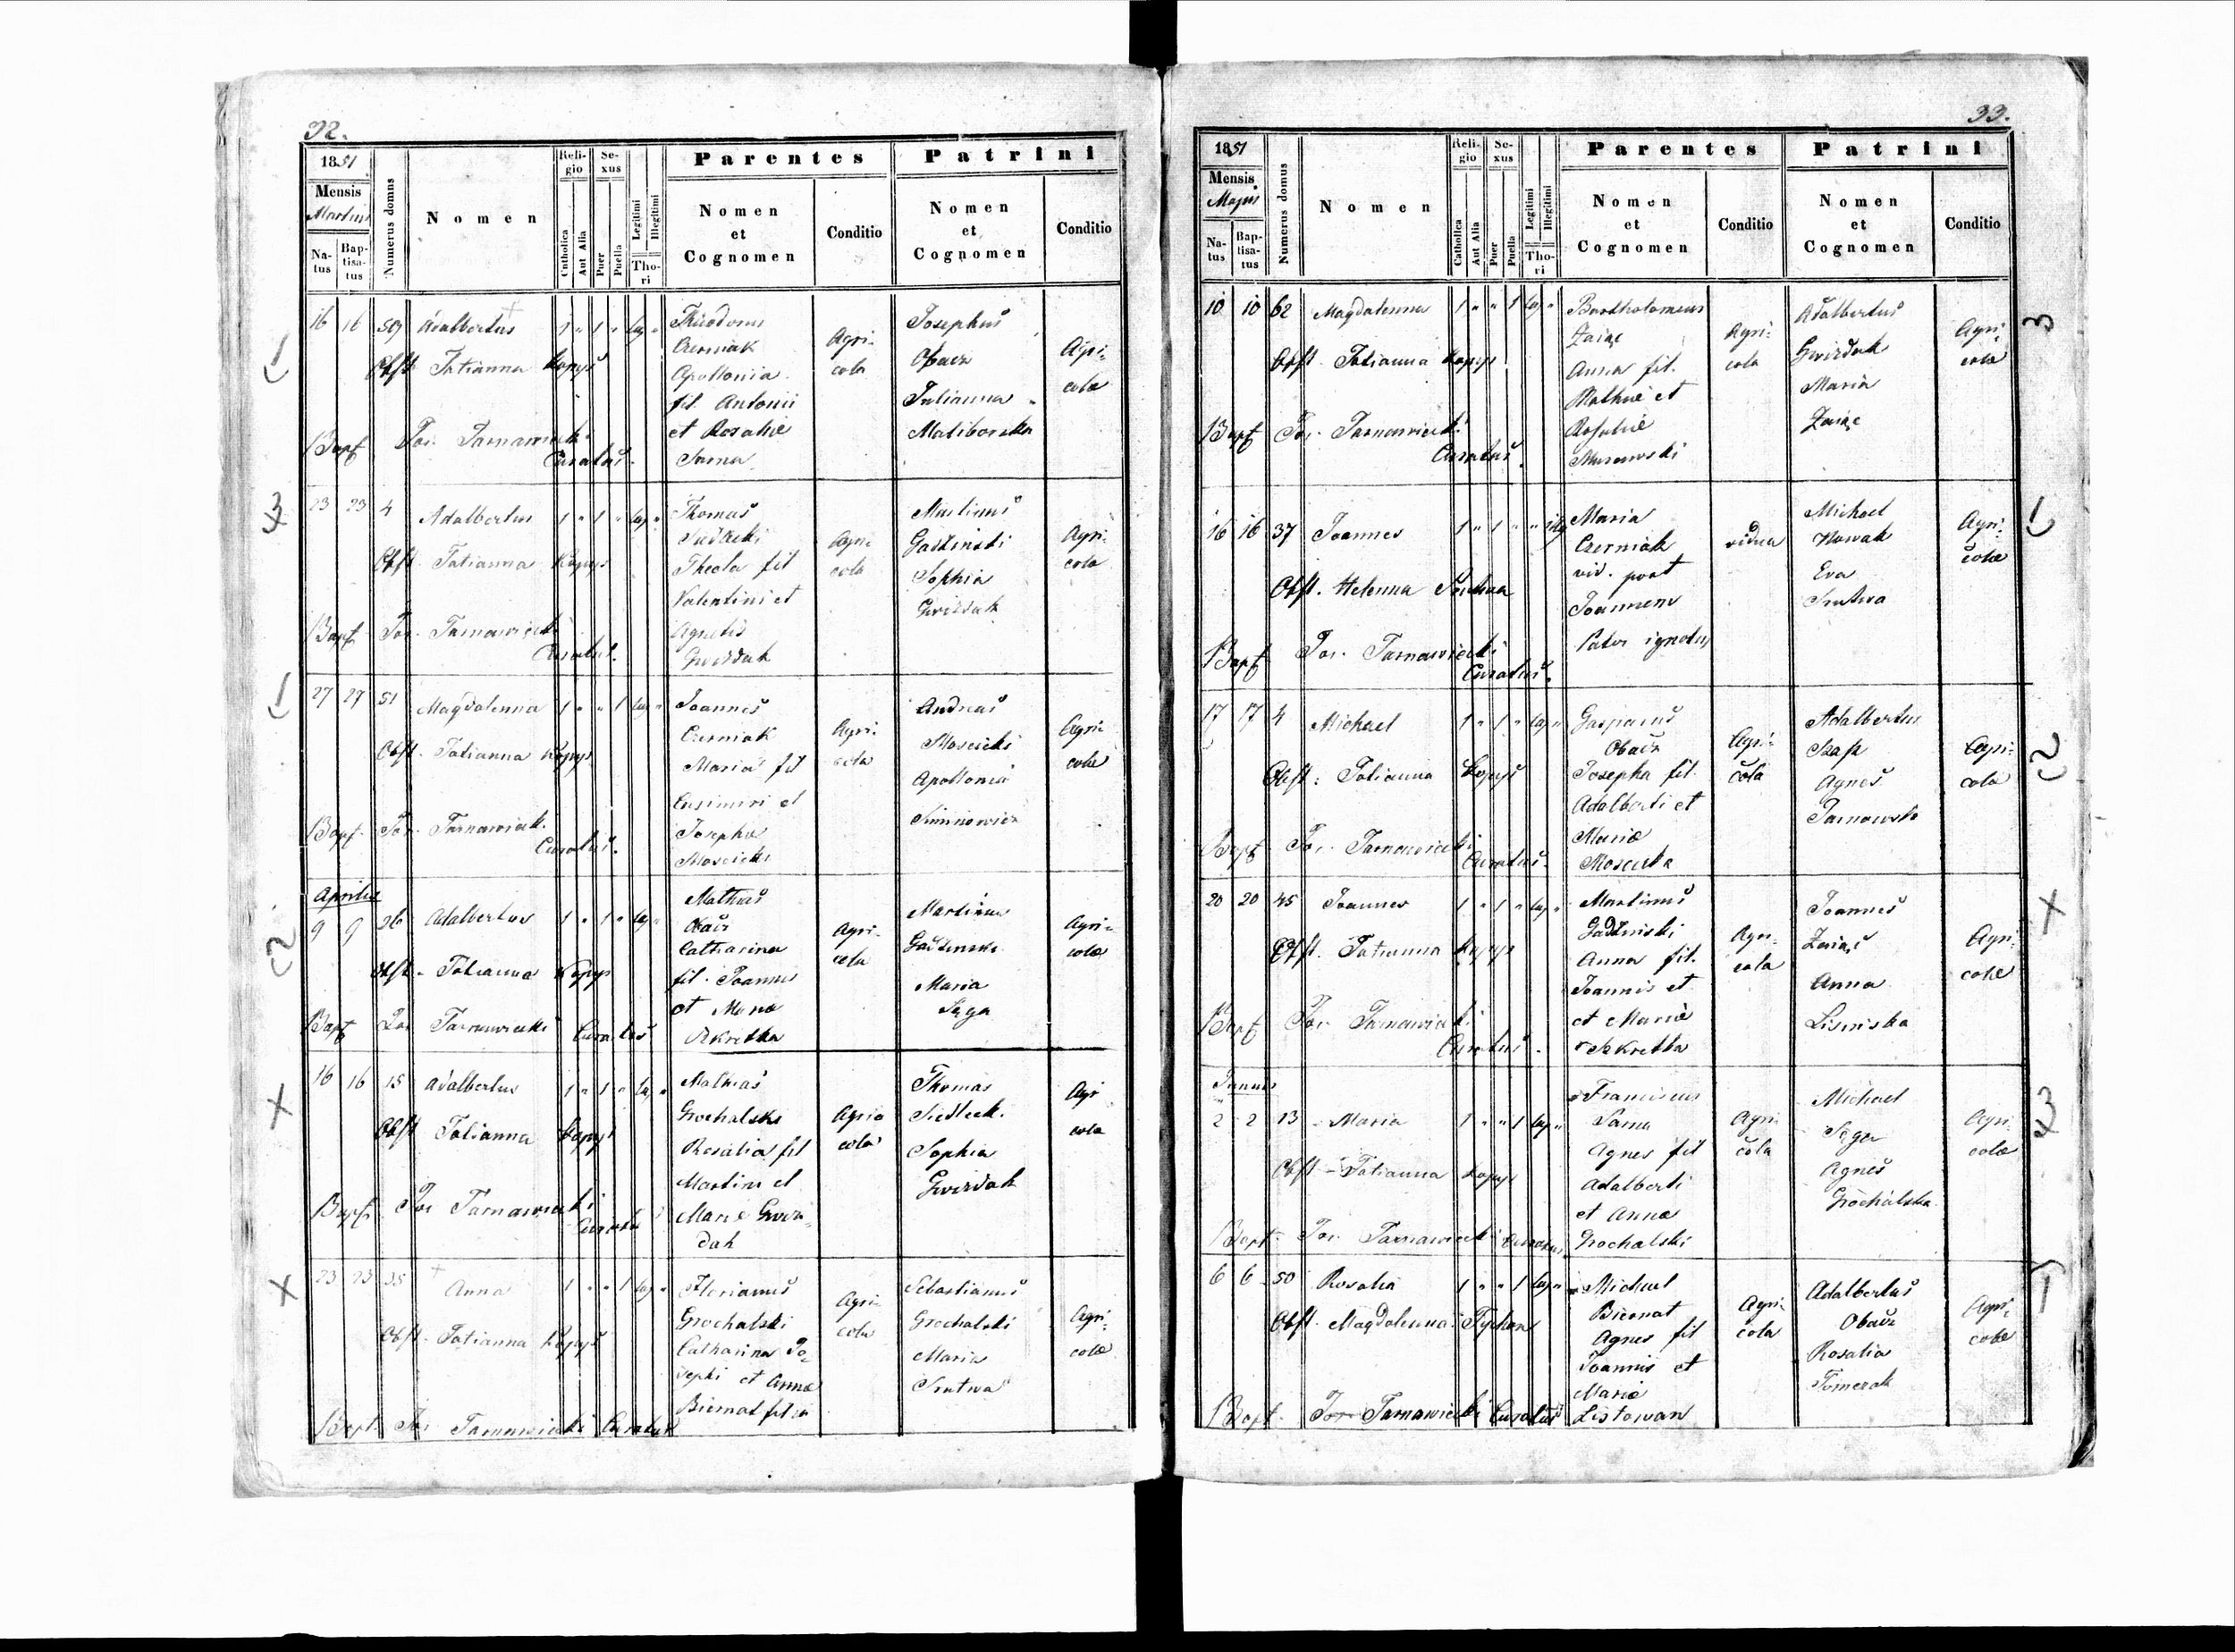 32.
1851
Mensis
Martius
Natus
Baptisatus
Numerus domus
Nomen
Religio
Catholica
Aut Alia
Sexus
Puer
Puella
Legitimi
Illegitimi
Thori
Parentes
Nomen
et
Cognomen
Conditio
Patrini
Nomen
et
Cognomen
Conditio
16 16 59 Adalbertus 1 " 1 " leg "
Obst. Tatianna Kopys
Bapt Jos. Tarnawiecki
Curatus.
Theodorus
Czerniak
Apollonia
fil. Antonii
et Rosaliæ
Sarna
Agri-
cola
Josephus
Obacz
Julianna
Agri-
colæ
23 23 4 Adalbertus 1 " 1 " leg "
Obst. Tatianna Kopys
Bapt Jos. Tarnawiecki
Curatus.
Thomas
Thecla fil
Valentini et
Agnetis
Gwizdak
Agri-
cola
Martinus
Sophia
Gwizdak
Agri-
colæ
27 27 51 Magdalenna 1 " " 1 leg "
Obst. Tatianna Kopys
Bapt. Jos. Tarnawiecki
Curatus.
Joannes
Czerniak
Maria fil
Casimiri et
Josephæ
Moscicki
Agri-
cola
Andreas
Moscicki
Apollonia
Agri-
colæ
Aprilis
9 9 26 Adalbertus 1 " 1 " leg "
Obst. Tatianna Kopys
Bapt Jos Tarnawiecki Curatus
Mathias
Obacz
Catharina
fil. Joannis
et Mariæ
Agri-
cola
Martinus
Maria
Sęga
Agri-
colæ
16 16 15 Adalbertus 1 " 1 " leg "
Obst Tatianna Kopys
Bapt. Jos Tarnawiecki
Curatus
Mathias
Grochalski
Rosalia fil
Martini et
Mariæ Gwiz-
dak
Agri
cola
Thomas
Siedlecki
Sophia
Gwizdak
Agri
colæ
23 23 35 Anna 1 " " 1 leg "
Obst. Tatianna Kopys
Bapt. Jos Tarnawiecki Curatus
Florianus
Grochalski
Catharina Jo-
sephi et Annæ
Biernat filia
Agri-
cola
Sebastianus
Grochalski
Maria
Srutwa
Agri-
colæ
33.
1851
Mensis
Majus
Natus
Baptisatus
Numerus domus
Nomen
Religio
Catholica
Aut Alia
Sexus
Puer
Puella
Legitimi
Illegitimi
Thori
Parentes
Nomen
et
Cognomen
Conditio
Patrini
Nomen
et
Cognomen
Conditio
10 10 62 Magdalenna 1 " " 1 leg "
Obst. Tatianna Kopys
Bapt Jos. Tarnawiecki
Curatus.
Bartholomeus
Zając
Anna fil.
Mathiæ et
Rosaliæ
Murawski
Agri-
cola
Adalbertus
Gwizdak
Maria
Zając
Agri-
colæ
16 16 37 Joannes 1 " 1 " " illeg
Obst. Helenna Srutwa
Bapt Jos. Tarnawiecki
Curatus.
Maria
Czerniak
vid. post
Joannem
Pater ignotus
vidua
Michael
Nowak
Eva
Srutwa
Agri-
colæ
17 17 4 Michael 1 " 1 " leg "
Obst. Tatianna Kopys
Bapt Jos. Tarnawiecki
Curatus.
Gasparus
Obacz
Josepha fil.
Adalberti et
Mariæ
Agri-
cola
Adalbertus
Agnes
Tarnowska
Agri-
colæ
20 20 45 Joannes 1 " 1 " leg "
Obst. Tatianna Kopys
Bapt Jos. Tarnawiecki
Curatus.
Martinus
Anna fil.
Joannis et
et Mariæ
Agri-
cola
Joannes
Zając
Anna
Agri-
colæ
Junius
2 2 13 Maria 1 " " 1 leg "
Obst - Tatianna Kopys
Bapt. Jos. Tarnawiecki Curatus
Franciscus
Sarna
Agnes fil
Adalberti
et Annæ
Grochalski
Agri-
cola
Michael
Sęga
Agnes
Grochalska
Agri-
colæ
6 6 50 Rosalia 1 " " 1 leg "
Obst. Magdalenna Tychon
Bapt. Jos Tarnawiecki Curatus
Michael
Biernat
Agnes fil
Joannis et
Mariæ
Listowan
Agri-
cola
Adalbertus
Obacz
Rosalia
Agri-
colæ